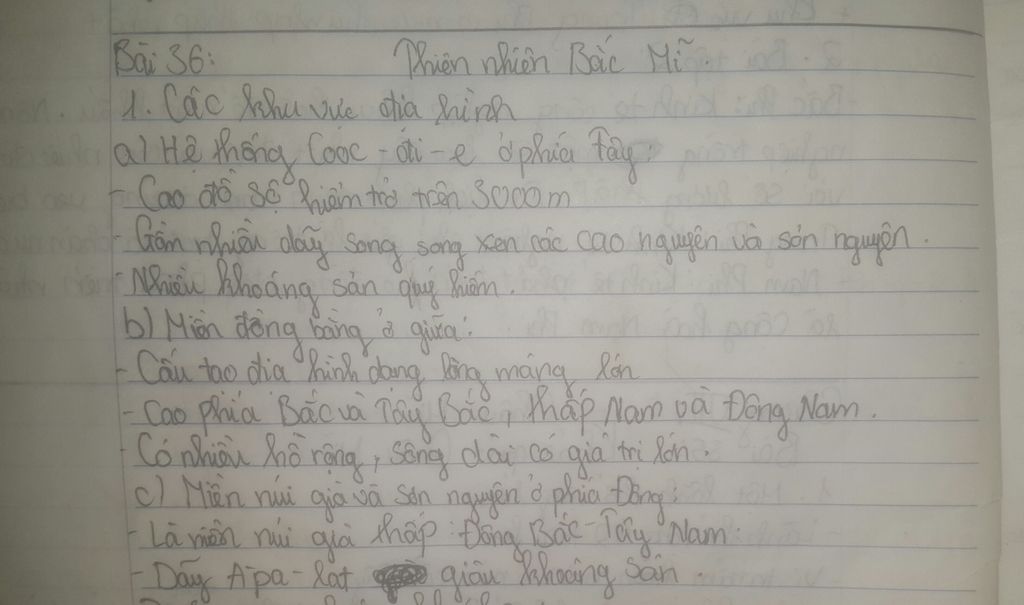 Bài 36: Thiên nhiên Bắc Mĩ.
1. Các khu vực địa hình
a) Hệ thống Cooc-đi-e ở phía Tây:
- Cao đồ sộ, hiểm trở trên 3000m
- Gồm nhiều dãy song song xen các cao nguyên và sơn nguyên.
- Nhiều khoáng sản quý hiếm.
b) Miền đồng bằng ở giữa:
- Cấu tạo địa hình dạng lòng máng lớn
- Cao phía Bắc và Tây Bắc, thấp Nam và Đông Nam.
- Có nhiều hồ rộng, sông dài có giá trị lớn.
c) Miền núi già và sơn nguyên ở phía Đông:
- Là miền núi già thấp: Đông Bắc-Tây Nam
- Dãy Apa-lat giàu khoáng sản.